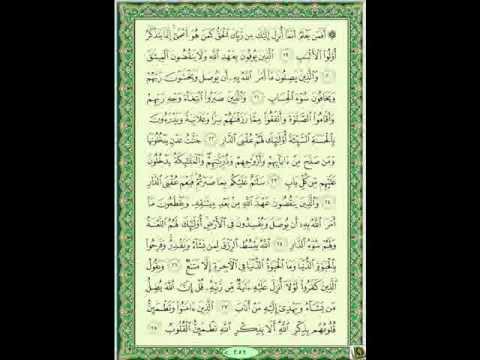 ۞ أَفَمَن يَعْلَمُ أَنَّمَآ أُنزِلَ إِلَيْكَ مِن رَّبِّكَ ٱلْحَقُّ كَمَنْ هُوَ أَعْمَىٰٓ إِنَّمَا يَتَذَكَّرُ
أُو۟لُوا۟ ٱلْأَلْبَٰبِ ١٩ ٱلَّذِينَ يُوفُونَ بِعَهْدِ ٱللَّهِ وَلَا يَنقُضُونَ ٱلْمِيثَٰقَ
٢٠ وَٱلَّذِينَ يَصِلُونَ مَآ أَمَرَ ٱللَّهُ بِهِۦٓ أَن يُوصَلَ وَيَخْشَوْنَ رَبَّهُمْ
وَيَخَافُونَ سُوٓءَ ٱلْحِسَابِ ٢١ وَٱلَّذِينَ صَبَرُوا۟ ٱبْتِغَآءَ وَجْهِ رَبِّهِمْ
وَأَقَامُوا۟ ٱلصَّلَوٰةَ وَأَنفَقُوا۟ مِمَّا رَزَقْنَٰهُمْ سِرًّا وَعَلَانِيَةً وَيَدْرَءُونَ
بِٱلْحَسَنَةِ ٱلسَّيِّئَةَ أُو۟لَٰٓئِكَ لَهُمْ عُقْبَى ٱلدَّارِ ٢٢ جَنَّٰتُ عَدْنٍ يَدْخُلُونَهَا
وَمَن صَلَحَ مِنْ ءَابَآئِهِمْ وَأَزْوَٰجِهِمْ وَذُرِّيَّٰتِهِمْ وَٱلْمَلَٰٓئِكَةُ يَدْخُلُونَ
عَلَيْهِم مِّن كُلِّ بَابٍ ٢٣ سَلَٰمٌ عَلَيْكُم بِمَا صَبَرْتُمْ فَنِعْمَ عُقْبَى ٱلدَّارِ
٢٤ وَٱلَّذِينَ يَنقُضُونَ عَهْدَ ٱللَّهِ مِنۢ بَعْدِ مِيثَٰقِهِۦ وَيَقْطَعُونَ مَآ
أَمَرَ ٱللَّهُ بِهِۦٓ أَن يُوصَلَ وَيُفْسِدُونَ فِى ٱلْأَرْضِ أُو۟لَٰٓئِكَ لَهُمُ ٱللَّعْنَةُ
وَلَهُمْ سُوٓءُ ٱلدَّارِ ٢٥ ٱللَّهُ يَبْسُطُ ٱلرِّزْقَ لِمَن يَشَآءُ وَيَقْدِرُ وَفَرِحُوا۟
بِٱلْحَيَوٰةِ ٱلدُّنْيَا وَمَا ٱلْحَيَوٰةُ ٱلدُّنْيَا فِى ٱلْءَاخِرَةِ إِلَّا مَتَٰعٌ ٢٦ وَيَقُولُ
ٱلَّذِينَ كَفَرُوا۟ لَوْلَآ أُنزِلَ عَلَيْهِ ءَايَةٌ مِّن رَّبِّهِۦ قُلْ إِنَّ ٱللَّهَ يُضِلُّ
مَن يَشَآءُ وَيَهْدِىٓ إِلَيْهِ مَنْ أَنَابَ ٢٧ ٱلَّذِينَ ءَامَنُوا۟ وَتَطْمَئِنُّ
قُلُوبُهُم بِذِكْرِ ٱللَّهِ أَلَا بِذِكْرِ ٱللَّهِ تَطْمَئِنُّ ٱلْقُلُوبُ ٢٨
٢٥٢